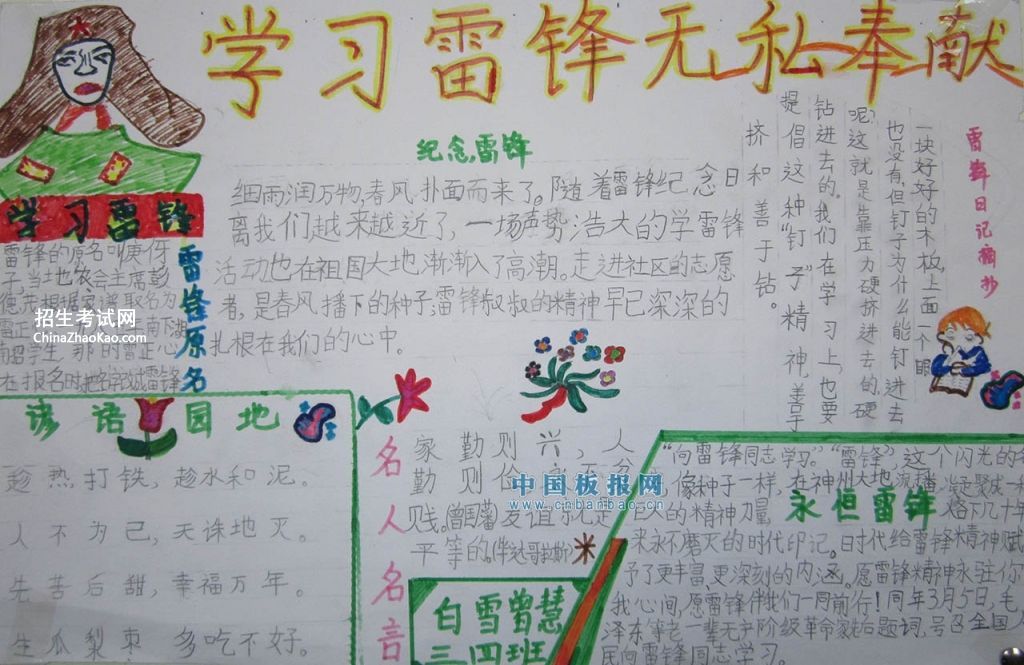 学习雷锋无私奉献
学习雷锋
雷锋原名
雷锋的原名叫庚伢
子,当地农会主席彭
德
在报名时把名字改成雷锋
招生考试网
ChinaZhaoKao.com
纪念雷锋
细雨润万物,春风扑面而来了。随着雷锋纪念日
离我们越来越近了,一场声势浩大的学雷锋
活动也在祖国大地渐渐入了高潮。走进社区的志愿
者,是春风播下的种子,雷锋叔叔的精神早已深深的
扎根在我们的心中。
雷锋日记摘抄
一块好好的木板,上面一个眼
也没有,但钉子为什么能钉进去
呢?这就是靠压力硬挤进去的,硬
钻进去的。我们在学习上,也要
提倡这种“钉子”精神,善于
挤和善于钻。
谚语园地
趁热打铁,趁水和泥。
人不为己,天诛地灭。
先苦后甜,幸福万年。
生瓜梨枣 多吃不好。
名人名言
家勤则兴,人
勤则俭,永不贫
贱。(曾国藩)友谊就是
平等的。
中国板报网
www.cnbanbao.cn
白雪曾慧
三四班
永恒雷锋
“向雷锋同志学习。”“雷锋”,这个闪光的
像种子一样,在神州大地流播,
巨人的精神力量 几十年
来永不磨灭的时代印记。时代给雷锋精神赋
予了更丰富,更深刻的内涵。愿雷锋精神永驻你
我心间,愿雷锋伴我们一同前行!同年3月5日,毛
泽东等老一辈无产阶级革命家先后题词,号召全国人
民向雷锋同志学习。